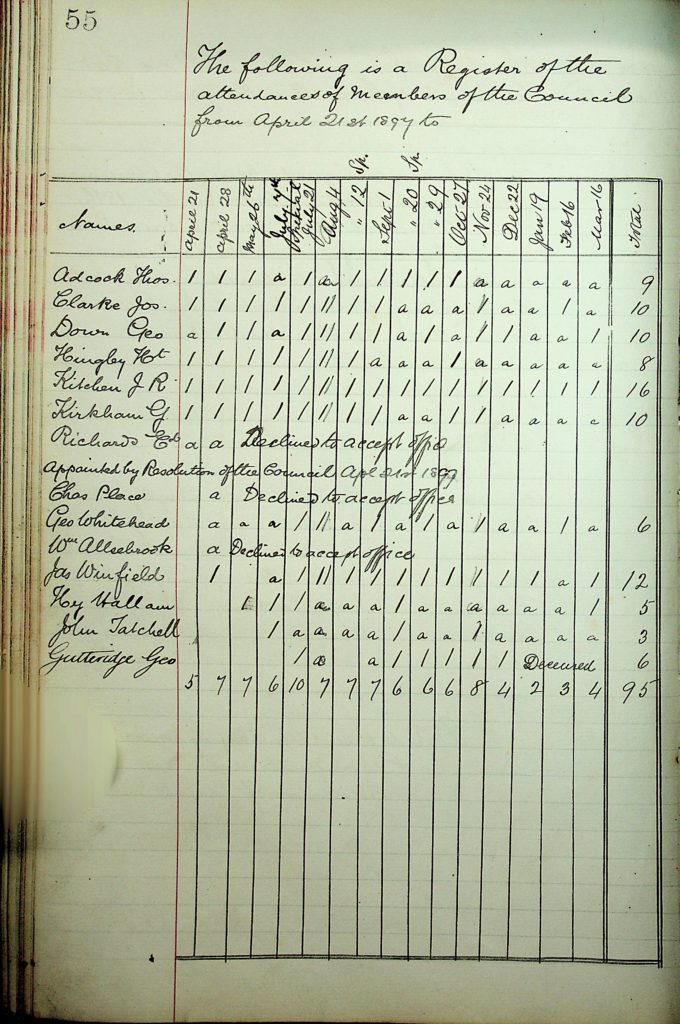 55
The following is a Register of the
attendances of Members of the Council
from April 21st 1897 to
Sp. Sp.
Names. April 21 April 28 May 26th July 7th Special July 21 Aug 4 " 12 Sept 1 " 20 " 29 Oct 27 Nov 24 Dec 22 Jan 19 Feb 16 Mar 16 Total
Adcock Thos. 1 1 1 a 1 a 1 1 1 1 1 a a a a a 9
Clarke Jos. 1 1 1 1 1 1 1 1 a a a 1 a a 1 a 10
Down Geo a 1 1 a 1 1 1 1 a 1 a 1 1 a a 1 10
Hingley Ht 1 1 1 1 1 1 1 a a a 1 a a a a a 8
Kitchen J R 1 1 1 1 1 1 1 1 1 1 1 1 1 1 1 1 16
Kirkham G 1 1 1 1 1 1 1 1 a a 1 1 a a a a 10
Richards Ed a a Declined to accept office
Appointed by Resolution of the Council Apl 21st 1897
Chas Place a Declined to accept office
Geo Whitehead a a a 1 1 a 1 a 1 a 1 a a 1 a 6
Wm Allsebrook a Declined to accept office
Jas Winfield 1 a 1 1 1 1 1 1 1 1 1 1 a 1 12
Hy Hallam 1 1 1 a a a 1 a a a a a a 1 5
John Tatchell 1 a a a a 1 a a 1 a a a a 3
Gutteridge Geo 1 a a 1 1 1 1 1 Deceased 6
5 7 7 6 10 7 7 7 6 6 6 8 4 2 3 4 95